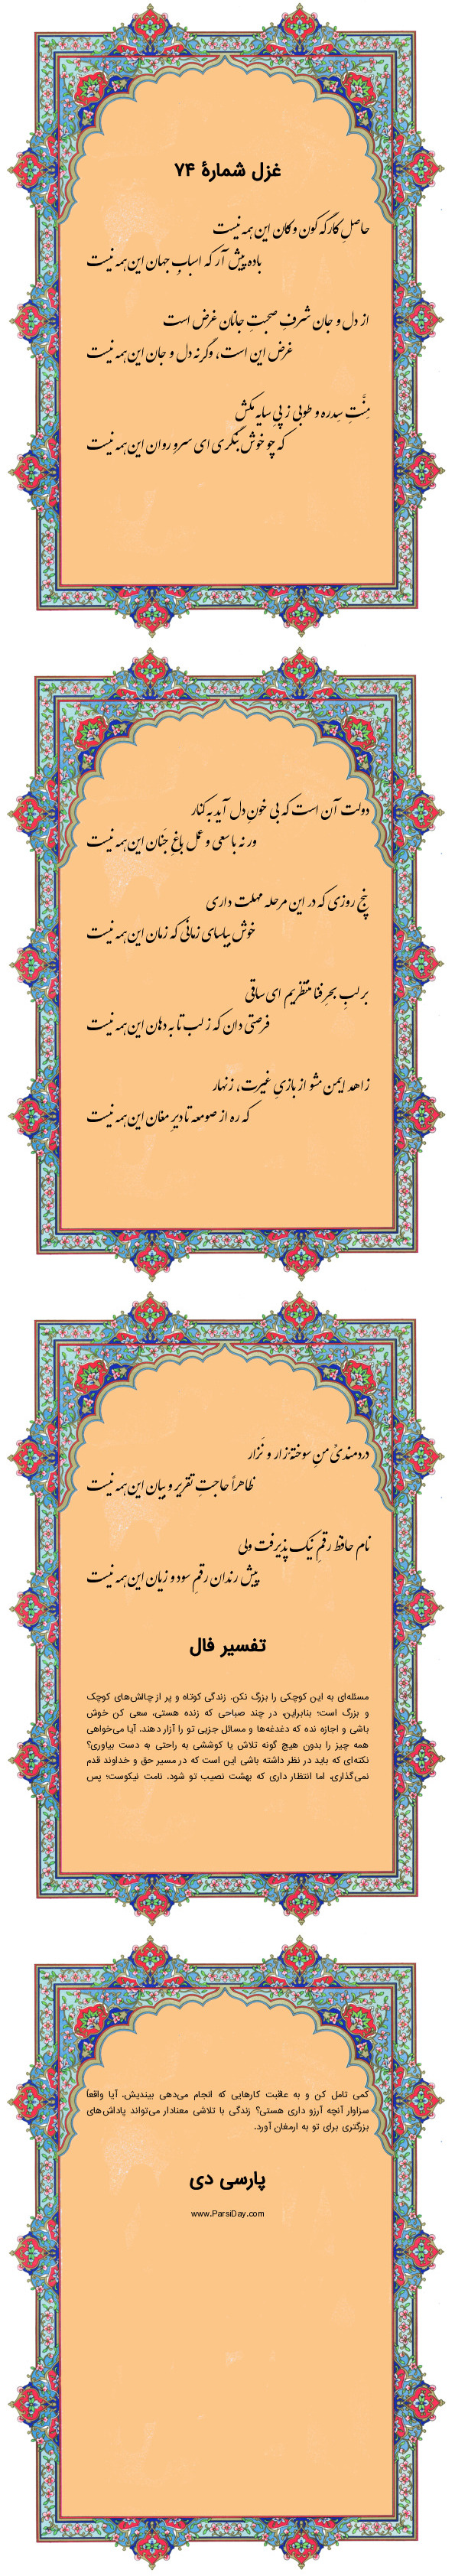 غزل شمارهٔ ۷۴
حاصلِ کارگه کون و مکان این همه نیست
باده پیش آر که اسبابِ جهان این همه نیست
از دل و جان شرفِ صحبتِ جانان غرض است
غرض این است، وگرنه دل و جان این همه نیست
منَّتِ سِدره و طوبی ز پیِ سایه مکش
که چو خوش بنگری ای سروِ روان این همه نیست
دولت آن است که بی خونِ دل آید به کنار
ور نه با سعی و عمل باغِ جَنان این همه نیست
پنج روزی که در این مرحله مهلت داری
خوش بیاسای زمانی که زمان این همه نیست
بر لبِ بحرِ فنا منتظریم ای ساقی
فرصتی دان که ز لب تا به دهان این همه نیست
زاهد ایمن مشو از بازیِ غیرت، زنهار
که ره از صومعه تا دیرِ مغان این همه نیست
دردمندیِّ منِ سوختهٔ زار و نَزار
ظاهراً حاجتِ تقریر و بیان این همه نیست
نام حافظ رقمِ نیک پذیرفت ولی
پیش رندان رقمِ سود و زیان این همه نیست
تفسیر فال
مسئله‌ای به این کوچکی را بزرگ نکن. زندگی کوتاه و پر از چالش‌های کوچک
و بزرگ است؛ بنابراین، در چند صباحی که زنده هستی، سعی کن خوش
باشی و اجازه نده که دغدغه‌ها و مسائل جزیی تو را آزار دهند. آیا می‌خواهی
همه چیز را بدون هیچ گونه تلاش یا کوششی به راحتی به دست بیاوری؟
نکته‌ای که باید در نظر داشته باشی این است که در مسیر حق و خداوند قدم
نمی‌گذاری، اما انتظار داری که بهشت نصیب تو شود. نامت نیکوست؛ پس
کمی تامل کن و به عاقبت کارهایی که انجام می‌دهی بیندیش. آیا واقعاً
سزاوار آنچه آرزو داری هستی؟ زندگی با تلاشی معنادار می‌تواند پاداش‌های
بزرگتری برای تو به ارمغان آورد.
پارسی دی
www.ParsiDay.com